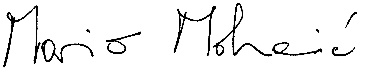 Mario Mohaić